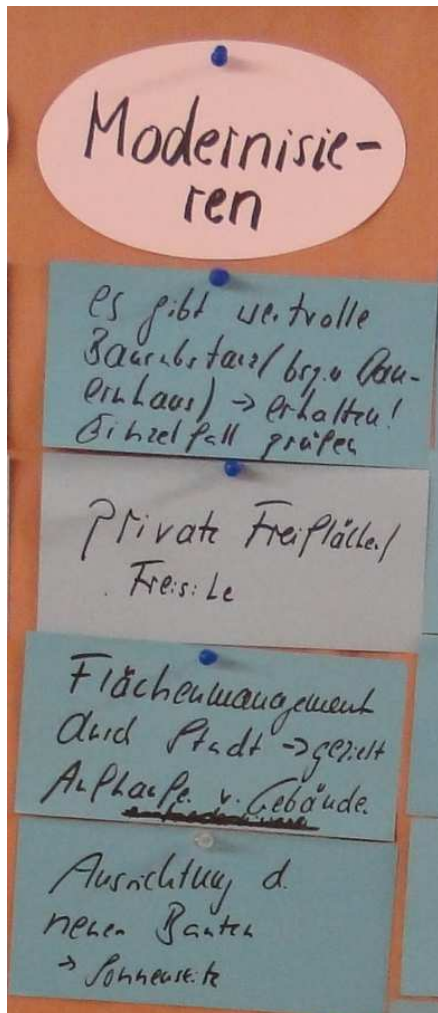 Modernisie-
ren
es gibt wertvolle
Bausubstanz/ bszw Bau-
ernhaus) → erhalten!
Einzelfall prüfen
private Freifläche/
Freisitze
Flächenmanagement
durch Stadt → gezielt
Aufkäufe v. Gebäude
Ausrichtung d.
neuen Bauten
→ Sonnenseite